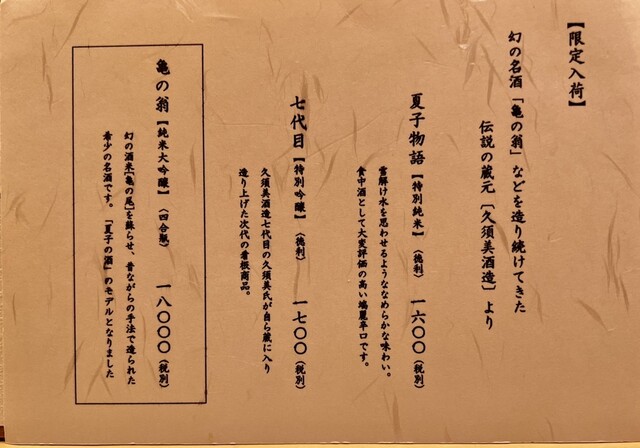 【限定入荷】
幻の名酒「亀の翁」などを造り続けてきた
伝説の蔵元〔久須美酒造〕より
夏子物語【特別純米】（徳利） 一六〇〇（税別）
雪解け水を思わせるようななめらかな味わい。
食中酒として大変評価の高い端麗辛口です。
七代目【特別吟醸】（徳利） 一七〇〇（税別）
久須美酒造七代目の久須美氏が自ら蔵に入り
造り上げた次代の看板商品。
亀の翁【純米大吟醸】（四合瓶） 一八〇〇〇（税別）
幻の酒米「亀の尾」を蘇らせ、昔ながらの手法で造られた
希少の名酒です。「夏子の酒」のモデルとなりました